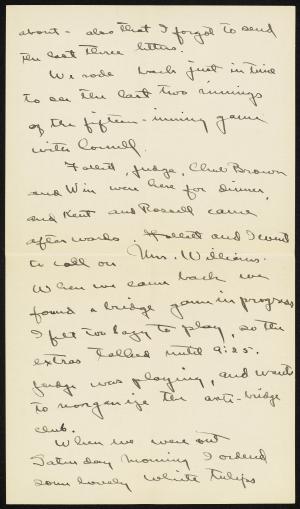 about - also that I forgot to send
the last three letters.
We rode back just in time
to see the last two innings
of the fifteen-inning game
with Cornell.
Follett, Judge, Chub Brown
and Win were here for dinner,
and Kent and Russell came
afterwards. Follett and I went
to call on Mrs. Williams.
When we came back we
found a bridge game in progress
I felt too lazy to play, so the
extras talked until 9:25.
Judge was playing, and wants
to reorganize the anti-bridge
club.
When we were out
Saturday morning I ordered
some lovely white tulips